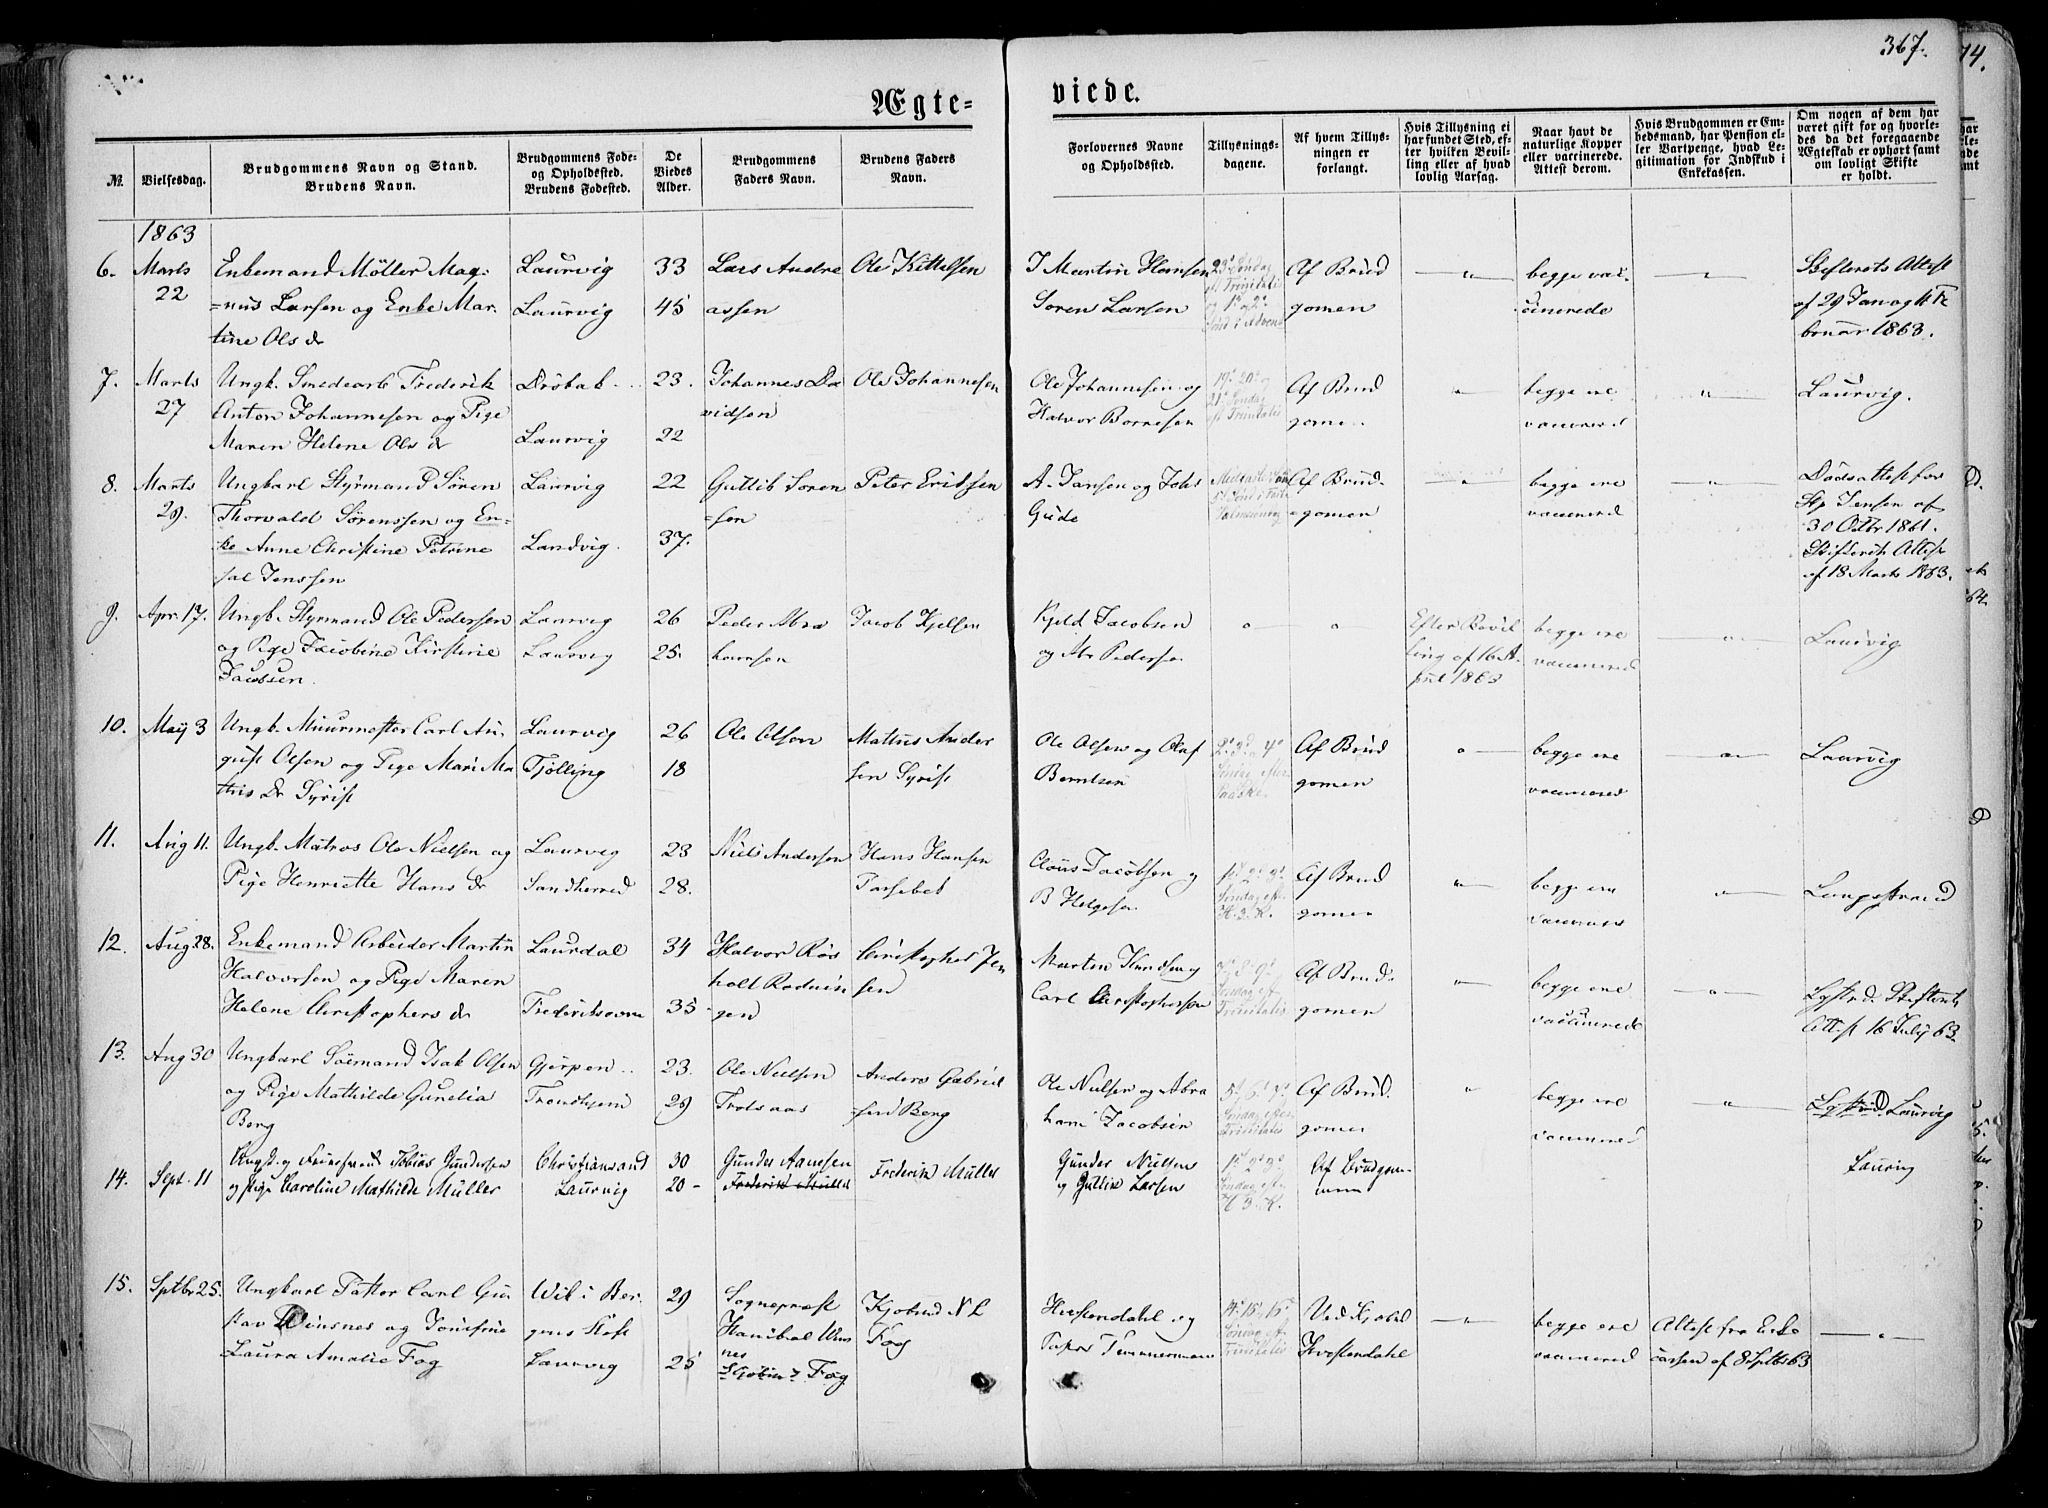 367.
Ægte=
viede.
№.
Vielsesdag.
Brudgommens Navn og Stand.
Brudens Navn.
Brudgommens Føde-
og Opholdssted.
Brudens Fødested.
De
Viedes
Alder.
Brudgommens
Faders Navn.
Brudens Faders
Navn.
Forlovernes Navne
og Opholdssted.
Tillysnings-
dagene.
Af hvem Tillys-
ningen er
forlangt.
Hvis Tillysning ei
har fundet Sted, ef-
ter hvilken Bevil-
ling eller af hvad
lovlig Aarsag.
Naar havt de
naturlige Kopper
eller vaccinerede.
Attest derom.
Hvis Brudgommen er Em-
bedsmand, har Pension el-
ler Vartpenge, hvad Le-
gitimation for Indskud i
Enkekassen.
Om nogen af dem har
været gift før og hvorle-
des da det foregaaende
Ægteskab er ophørt samt
om lovligt Skifte
er holdt.
1863
6.
Marts
22
Enkemand Möller Mag-
=nus Larsen og Enke Mar-
tine Ols dr
Laurvig
Laurvig
33
45
Lars Andre
assen
Ole Kittelsen
I Martin Hansen
Soren Larsen
23d Søndag
eft Trinitatis
og 1d og 2d
Sønd i Advent
Af Brud
gomen
begge vac-
cinerede
Skifterets Attest
af 29 Jan og 11 Fe
bruar 1863.
7.
Marts
27
Ungk. Smedearb Frederik
Anton Johannesen og Pige
Maren Helene Ols dr
Drøbak
Laurvig
23.
22
Johannes Da
vidsen
Ole Johannesen
Ole Johannesen og
Halvor Borresen
19d 20d og
21d Søndag
eft Trinitatis
Af Brud
gomen
begge ere
vaccinered
Laurvig.
8.
Marts
29.
Ungkarl Styrmand Sören
Thorvald Sörenssen og En-
ke Anne Christine Petrine
sal Jenssen
Laurvig
Landvig.
22
37.
Gullib Soren
=sen
Peter Eriksen
A. Jansen og Johs
Gude
Af Brud-
=gomen
begge ere
vaccinered
Dödsattest for
Jensen af
30 Octbr 1861.
Skifterets Attest
af 18 Marts 1863.
9.
Apr. 17.
Ungk. Styrmand Ole Pedersen
og Pige Jacobine Kirstine
Jacobsen.
Laurvig
Laurvig
26
25.
Peder Abra
hamsen
Jacob Kjelsen
Kjeld Jacobsen
og Abr Pedersen
Efter Bevil
ling af 16 A-
pril 1863
begge ere
vaccinered
Laurvig
10.
May 3
Ungk. Muurmester Carl Au-
gust Olsen og Pige Mari Ma
this Dr Syrist
Laurvig
Tjølling
26
18
Ole Olsen
Mathis Ander
sen Syrist
Ole Olsen og Olaf
Berntsen
2d 3d og 4d
Søndag efter
Paaske.
Af Brud
gomen
begge ere
vaccinered
Laurvig
11.
Aug 11.
Ungk. Matros Ole Nielsen og
Pige Henriette Hans dr
Laurvig
Sandherred
23
28.
Niels Andersen
Hans Hansen
Claus Jacobsen og
B Helgesen
1d 2d 3d
Søndag eft.
H. 3. K.
Af Brud
gomen
begge ere
vaccineret
Langestrand
12.
Aug 28.
Enkemand Arbeider Martin
Halvorsen og Pige Maren
Helene Christophers dr
Laurdal
Frederiksværn
34
35
Halvor Rös
holt Rodnin
gen
Christopher Jen
sen
Morten Knudsen og
Carl Christophersen
7d 8d 9d
Søndag eft
Trinitatis
Af Brud-
gomen
begge ere
vaccinerede
Lgstrd. Skifterets
Attest 16 July 63.
13.
Aug 30
Ungkarl Søemand Isak Olsen
og Pige Mathilde Gurelia
Berg
Gjerpen
Trondhjem
23.
29
Ole Nielsen
Anders Gabriel
sen Berg
Ole Nielsen og Abra
ham Jacobsen
5d 6d 7d
Søndag efter
Trinitatis
Af Brud.
gomen
begge ere
vaccinered
Laurvig
14.
Sept. 11
Tobias Gundersen
og pige Caroline Mathilde Müller
Christiansand
Laurvig
30
20
Gunder Aanesen
Frederik Müller
Frederik Müller
Gunder Nielsen
og Gullik Larsen
1d 2d 3d
Søndag eft.
H 3. K.
Af Brudgom-
men
Laurvig
15.
Sptbr 25.
Ungkarl Carl Gu
stav Winsnes og Josefine
Laura Amalie Fog
Wik i Ber-
gens Stift
Laurvig
29
25
Sognepræst
Hanibal Wins
nes
Fog
Kjøbmd N L
Fog
Hvistendahl og
Timmermann
14d 15d 16d
Søndag eft
Trinitatis
Ved Kjøbmd
Hvistendahl
begge ere
vaccinered
Attest fra Enke
cassen af 8 Septbr 63